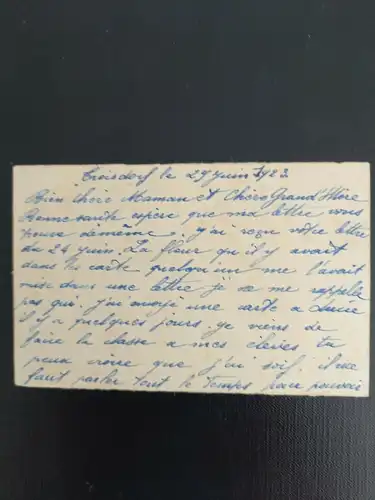 Troisdorf le 29 juin 1923
Bien Chère Maman et Chère Grand'Mère
Bonne santé espère que ma lettre vous
trouve de même. j'ai reçu votre lettre
du 24 juin. La fleur qu'il y avait
dans la carte quelqu'un me l'avait
mise dans une lettre je ne me rappelle
pas qui. j'ai envoyé une carte a
il y a quelques jours. je viens de
faire la classe a mes élèves tu
peux croire que j'ai soif. il me
faut parler tout le temps pour pouvoir